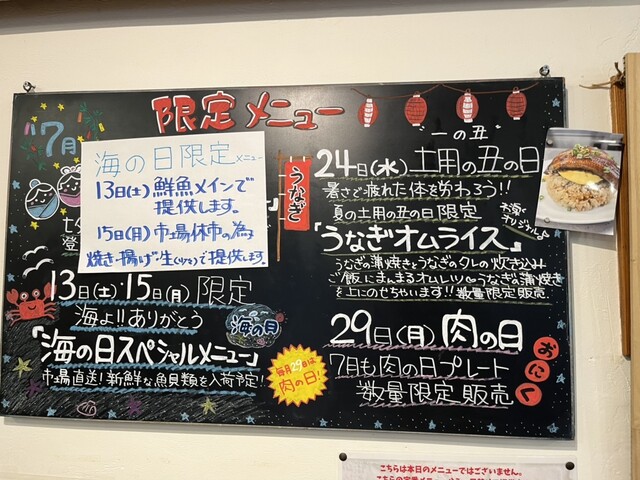 限定メニュー
7月
海の日限定メニュー
13日(土)鮮魚メインで
提供します。
15日(月)市場休市の為
焼き・揚げ・生(ツマミ)で提供します。
七夕
登
13日(土)・15日(月)限定
海よ!!ありがとう
海の日
「海の日スペシャルメニュー」
市場直送!新鮮な魚貝類を入荷予定!
毎月29日は
肉の日!
うなぎ
"一の丑"
24日(水)土用の丑の日
暑さで疲れた体を労わろう!!
夏の土用の丑の日限定
「うなぎオムライス」
うなぎの蒲焼きとうなぎのタレの炊き込み
ご飯にまんまるオムレツ、うなぎの蒲焼き
を上にのせちゃいます!!数量限定販売
29日(月)肉の日
7月も肉の日プレート
数量限定販売
おにく
こちらは本日のメニューではございません。